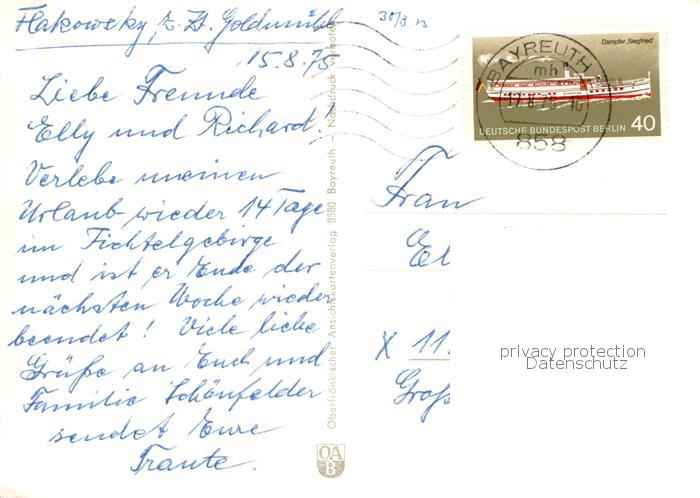 Flakowsky, z. Zt. Goldmühl
30/8 75
15.8.75
Liebe Freunde
Elly und Richard.
Verlebe meinen
Urlaub wieder 14 Tage
im Fichtelgebirge
und ist er Ende der
nächsten Woche wieder
beendet! Viele liebe
Grüße an Euch und
Familie Schönfelder
sendet Eure
Traute.
Oberfränkischer Ansichtskartenverlag 8580 Bayreuth – Nachdruck verboten
OA
B
Dampfer „Siegfried“
DEUTSCHE BUNDESPOST BERLIN 40
BAYREUTH
mh
858
Frau
El
X 11
Groß
privacy protection
Datenschutz